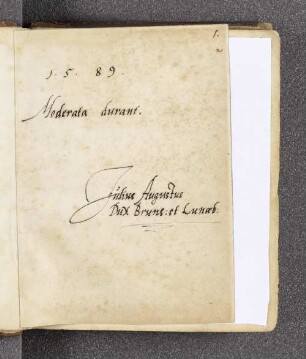 1.
1. 5. 89.
Moderata durant.
Julius Augustus
Dux Bruns: et Lunæb.